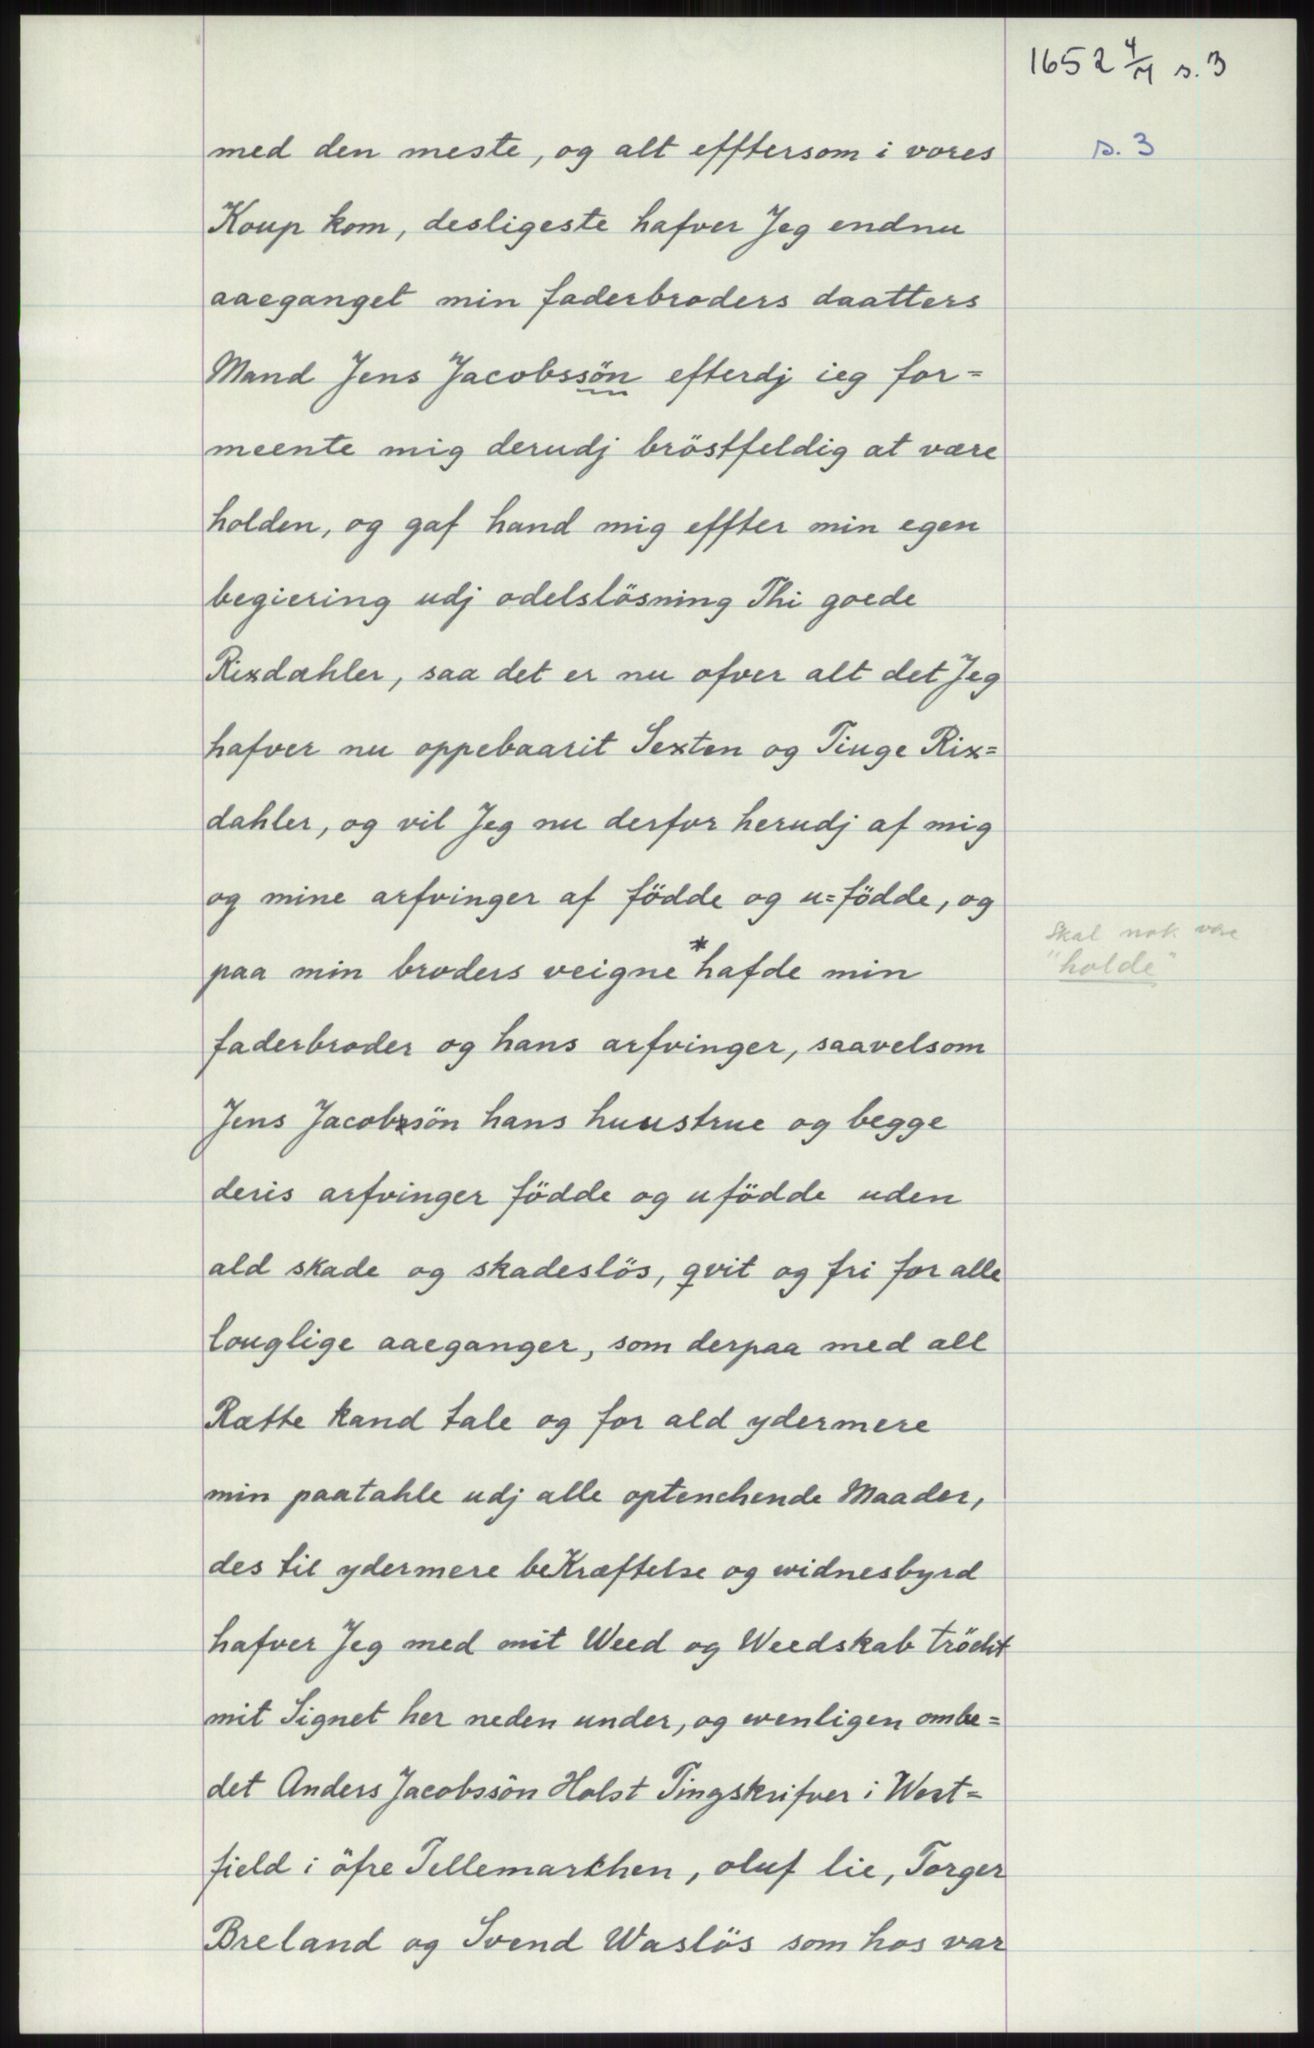 1652 4/7 s. 3
s. 3
med den meste, og alt efftersom i vores
Koup kom, desligeste hafver Jeg endnu
aaeganget min faderbroders daatters
Mand Jens Jacobssön efterdj ieg for=
meente mig derudj bröstfeldig at være
holden, og gaf hand mig effter min egen
begiering udj odelslösning Thi goede
Rixdahler, saa det er nu ofver alt det Jeg
hafver nu oppebaarit Sexten og Tiuge Rix=
dahler, og vil Jeg nu derfor herudj af mig
og mine arfvinger af födde og u=födde, og
paa min broders veigne *hafde min
Skal nok være
"holde"
faderbroder og hans arfvinger, saavelsom
Jens Jacobssön hans huustrue og begge
deris arfvinger födde og ufödde uden
ald skade og skadeslös, qvit og fri for alle
louglige aaeganger, som derpaa med all
Rætte kand tale og for ald ydermere
min paatahle udj alle optenchende Maader,
des til ydermere beKræftelse og widnesbyrd
hafver Jeg med mit Weed og Weedskab tröcht
mit Signet her neden under, og wenligen ombe=
det Anders Jacobssön Holst Tingskrifver i West=
field i öfre Tellemarkhen, oluf lie, Torger
Breland og Svend Waslös som hos var